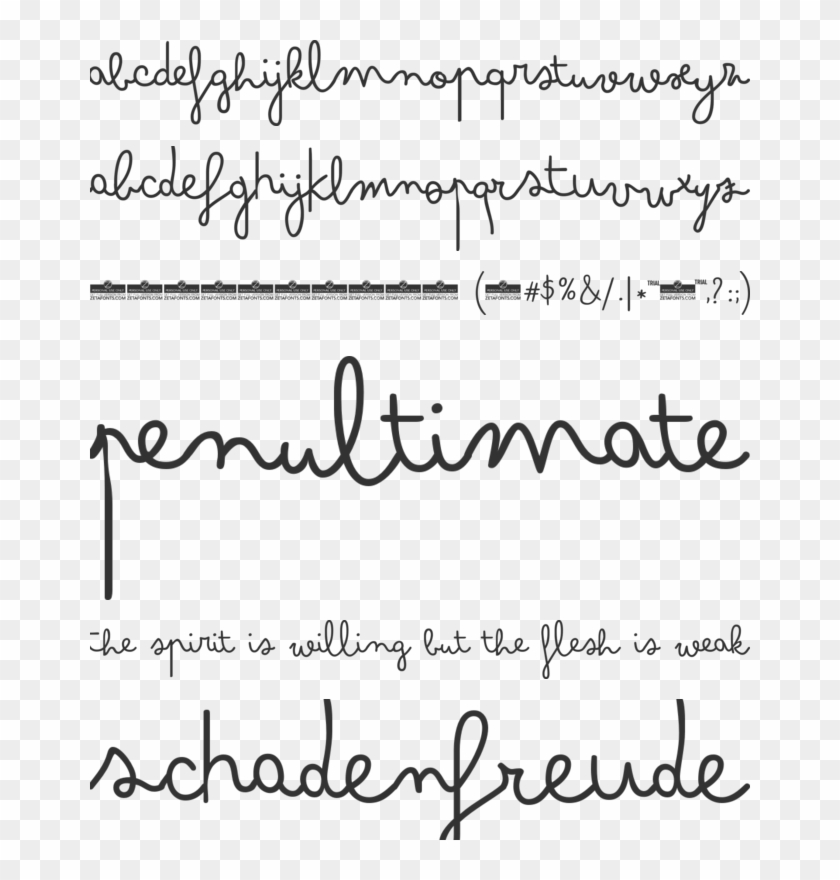 abcdefghijklmnopqrstuvwxyz
abcdefghijklmnopqrstuvwxyz
ZETAFONTS.COM ZETAFONTS.COM ZETAFONTS.COM ZETAFONTS.COM ZETAFONTS.COM ZETAFONTS.COM ZETAFONTS.COM ZETAFONTS.COM ZETAFONTS.COM ZETAFONTS.COM (ZETAFONTS.COM #$%&/.|* TRIAL ZETAFONTS.COM TRIAL ,?:;)
penultimate
the spirit is willing but the flesh is weak
schadenfreude